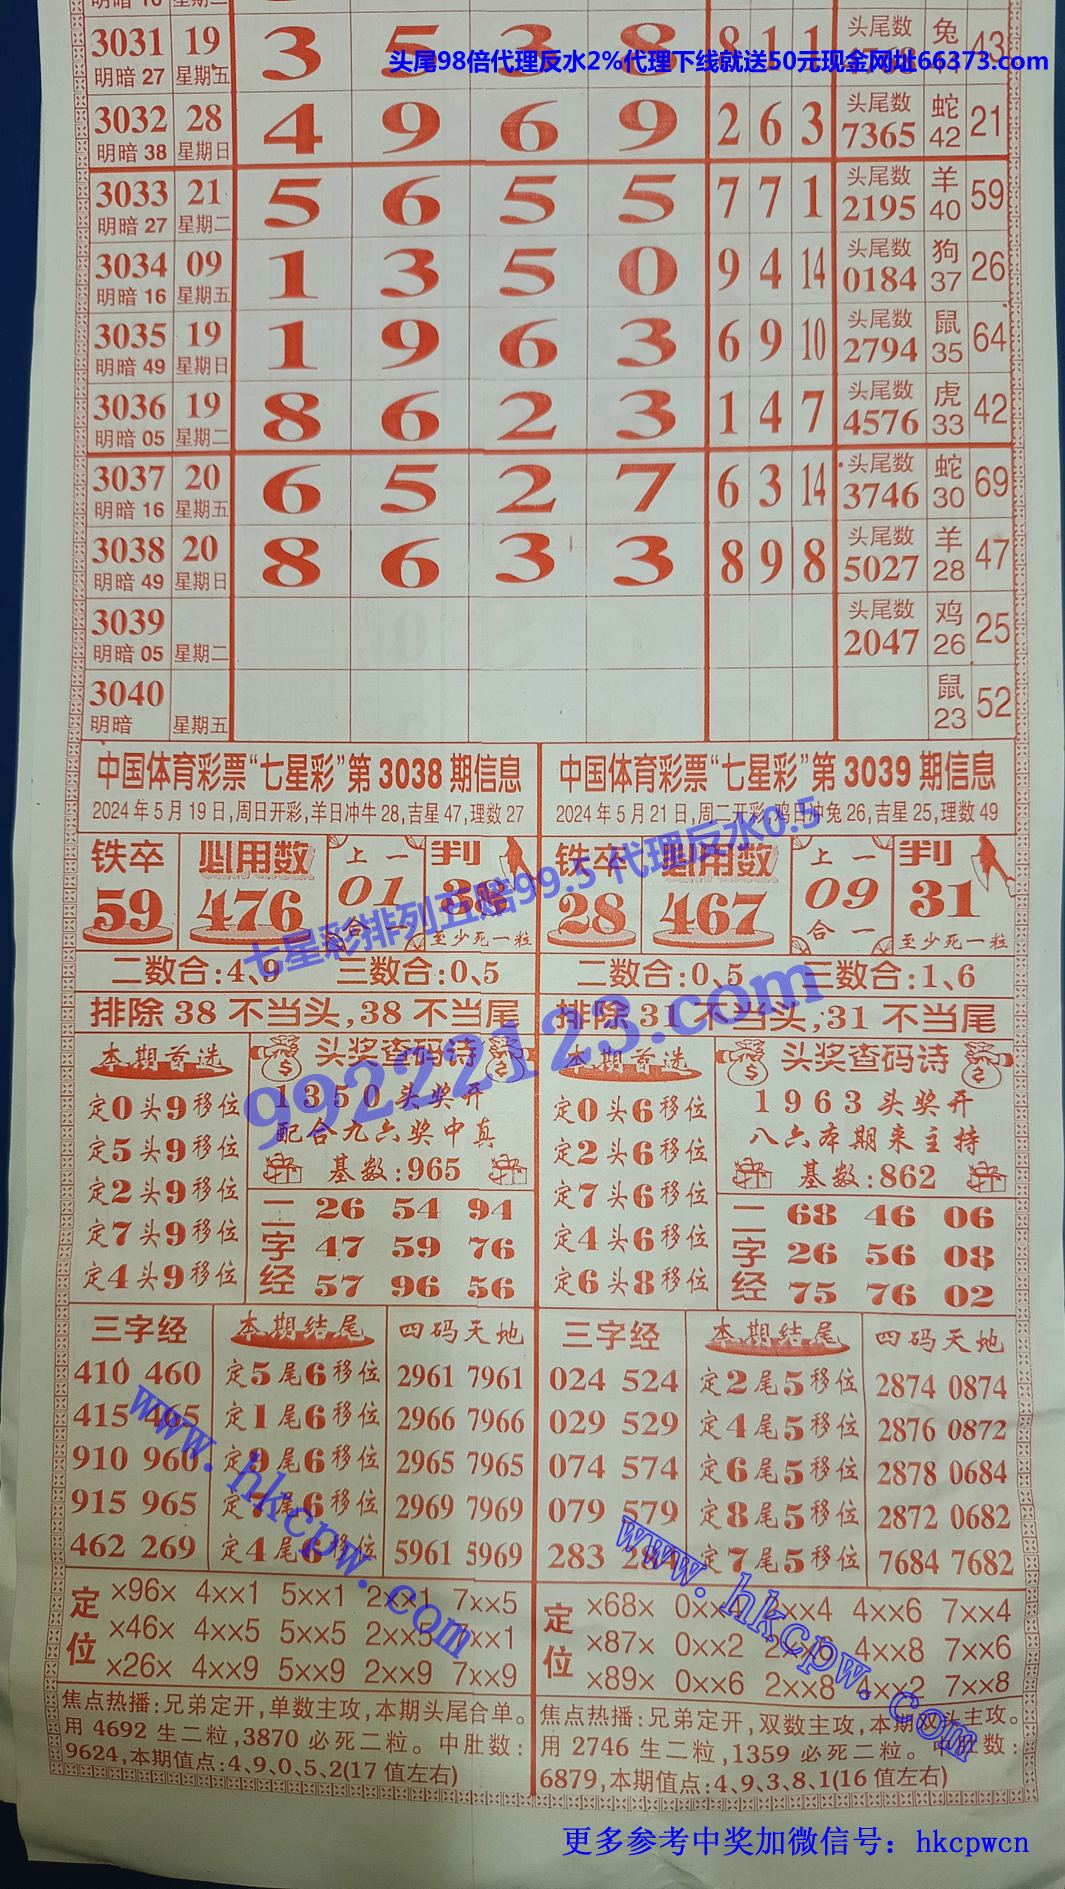 3031 19 3 5 3 8 8 1 1 头尾数 兔 43
头尾98倍代理反水2%代理下线就送50元现金网址66373.com
明暗 27 星期五
3032 28 4 9 6 9 2 6 3 头尾数 蛇 21
明暗 38 星期日 7365 42
3033 21 5 6 5 5 7 7 1 头尾数 羊 59
明暗 27 星期二 2195 40
3034 09 1 3 5 0 9 4 14 头尾数 狗 26
明暗 16 星期五 0184 37
3035 19 1 9 6 3 6 9 10 头尾数 鼠 64
明暗 49 星期日 2794 35
3036 19 8 6 2 3 1 4 7 头尾数 虎 42
明暗 05 星期二 4576 33
3037 20 6 5 2 7 6 3 14 头尾数 蛇 69
明暗 16 星期五 3746 30
3038 20 8 6 3 3 8 9 8 头尾数 羊 47
明暗 49 星期日 5027 28
3039 头尾数 鸡 25
明暗 05 星期二 2047 26
3040 鼠 52
明暗 星期五 23
中国体育彩票“七星彩”第 3038 期信息
2024 年 5 月 19 日,周日开彩,羊日冲牛 28,吉星 47,理数 27
铁卒 必用数 上一
59 476 01
合一 至少死一粒
二数合:4、9 三数合:0、5
排除 38 不当头,38 不当尾
本期首选 头奖查码诗
定0头9移位 1350头奖开
定5头9移位 配合九六奖中真
定2头9移位 基数:965
定7头9移位
定4头9移位
二字经
26 54 94
47 59 76
57 96 56
三字经 本期结尾 四码天地
410 460 定5尾6移位 2961 7961
415 465 定1尾6移位 2966 7966
910 960 定9尾6移位 2965 7965
915 965 定7尾6移位 2969 7969
462 269 定4尾6移位 5961 5969
定位
×96× 4××1 5××1 2××1 7××5
×46× 4××5 5××5 2××5 ××1
×26× 4××9 5××9 2××9 7××9
焦点热播:兄弟定开,单数主攻,本期头尾合单。
用 4692 生二粒,3870 必死二粒。中肚数:
9624,本期值点:4、9、0、5、2(17 值左右)
中国体育彩票“七星彩”第 3039 期信息
2024 年 5 月 21 日,周二开彩,鸡日冲兔 26,吉星 25,理数 49
铁卒 必用数 上一
28 467 09 31
合一 至少死一粒
二数合:0、5 三数合:1、6
排除 31 不当头,31 不当尾
本期首选 头奖查码诗
定0头6移位 1963头奖开
定2头6移位 八六本期来主持
定7头6移位 基数:862
定4头6移位
定6头8移位
二字经
68 46 06
26 56 08
75 76 02
三字经 本期结尾 四码天地
024 524 定2尾5移位 2874 0874
029 529 定4尾5移位 2876 0872
074 574 定6尾5移位 2878 0684
079 579 定8尾5移位 2872 0682
283 284 定7尾5移位 7684 7682
定位
×68× 0××4 ××4 4××6 7××4
×87× 0××2 2××6 4××8 7××6
×89× 0××6 2××8 4××2 7××8
焦点热播:兄弟定开,双数主攻,本期双头主攻。
用 2746 生二粒,1359 必死二粒。中肚数:
6879,本期值点:4、9、3、8、1(16 值左右)
七星彩排列五赔99.5 代理反水0.5
99222123.com
www.hkcpw.com
www.hkcpw.com
更多参考中奖加微信号：hkcpwcn